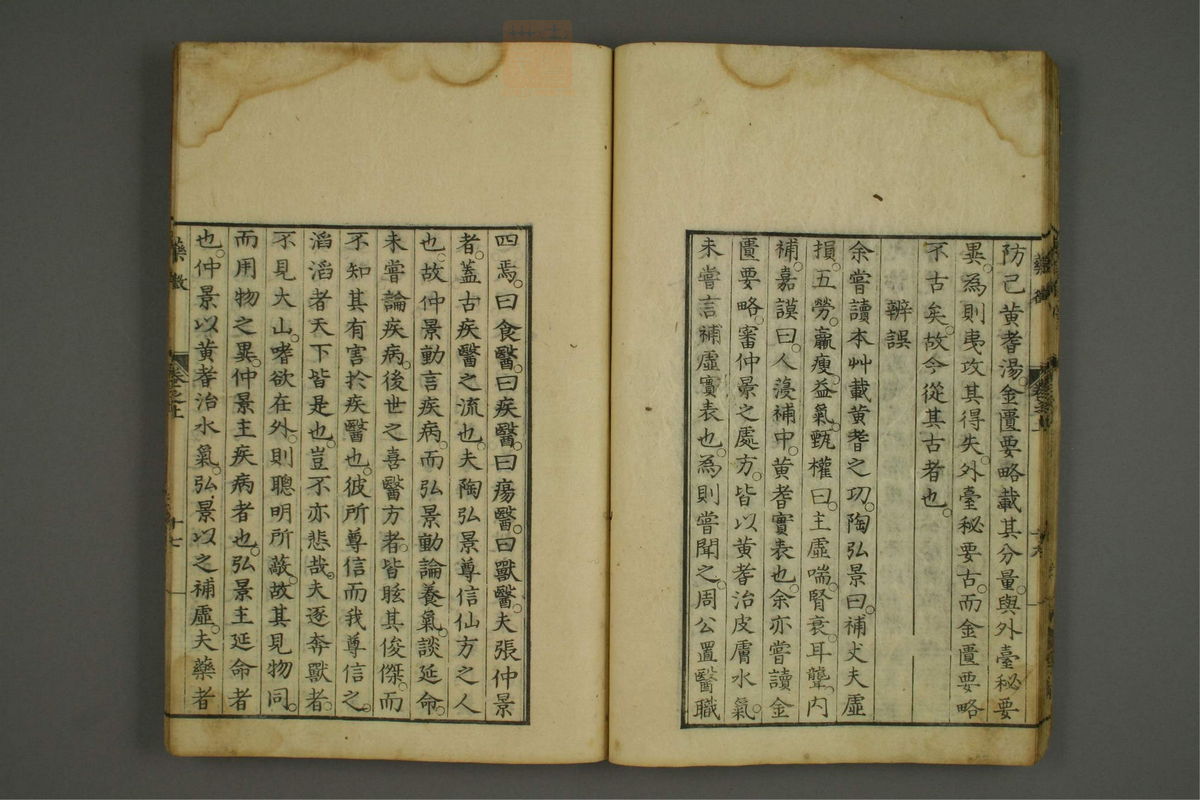 防己黃耆湯。金匱要略載其分量。與外臺秘要
異。為則夷攷其得失。外臺秘要古。而金匱要略
不古矣。故今從其古者也。
辨誤
余嘗讀本艸載黃耆之功。陶弘景曰。補丈夫虛
損。五勞。羸瘦。益氣。甄權曰。主虛喘。腎衰。耳聾。內
補。嘉謨曰。人蓡補中。黃耆實表也。余亦嘗讀金
匱要略。審仲景之處方。皆以黃耆治皮膚水氣。
未嘗言補虛實表也。為則嘗聞之。周公置醫職
四焉。曰食醫。曰疾醫。曰瘍醫。曰獸醫。夫張仲景
者。蓋古疾醫之流也。夫陶弘景尊信仙方之人
也。故仲景動言疾病。而弘景動論養氣。談延命。
未嘗論疾病。後世之喜醫方者。皆眩其俊傑。而
不知其有害於疾醫也。彼所尊信而我尊信之。
滔滔者天下皆是也。豈不亦悲哉。夫逐奔獸者。
不見大山。嗜欲在外。則聰明所蔽。故其見物同。
而用物之異。仲景主疾病者也。弘景主延命者
也。仲景以黃耆治水氣。弘景以之補虛。夫藥者
藥徵
卷之上
十七